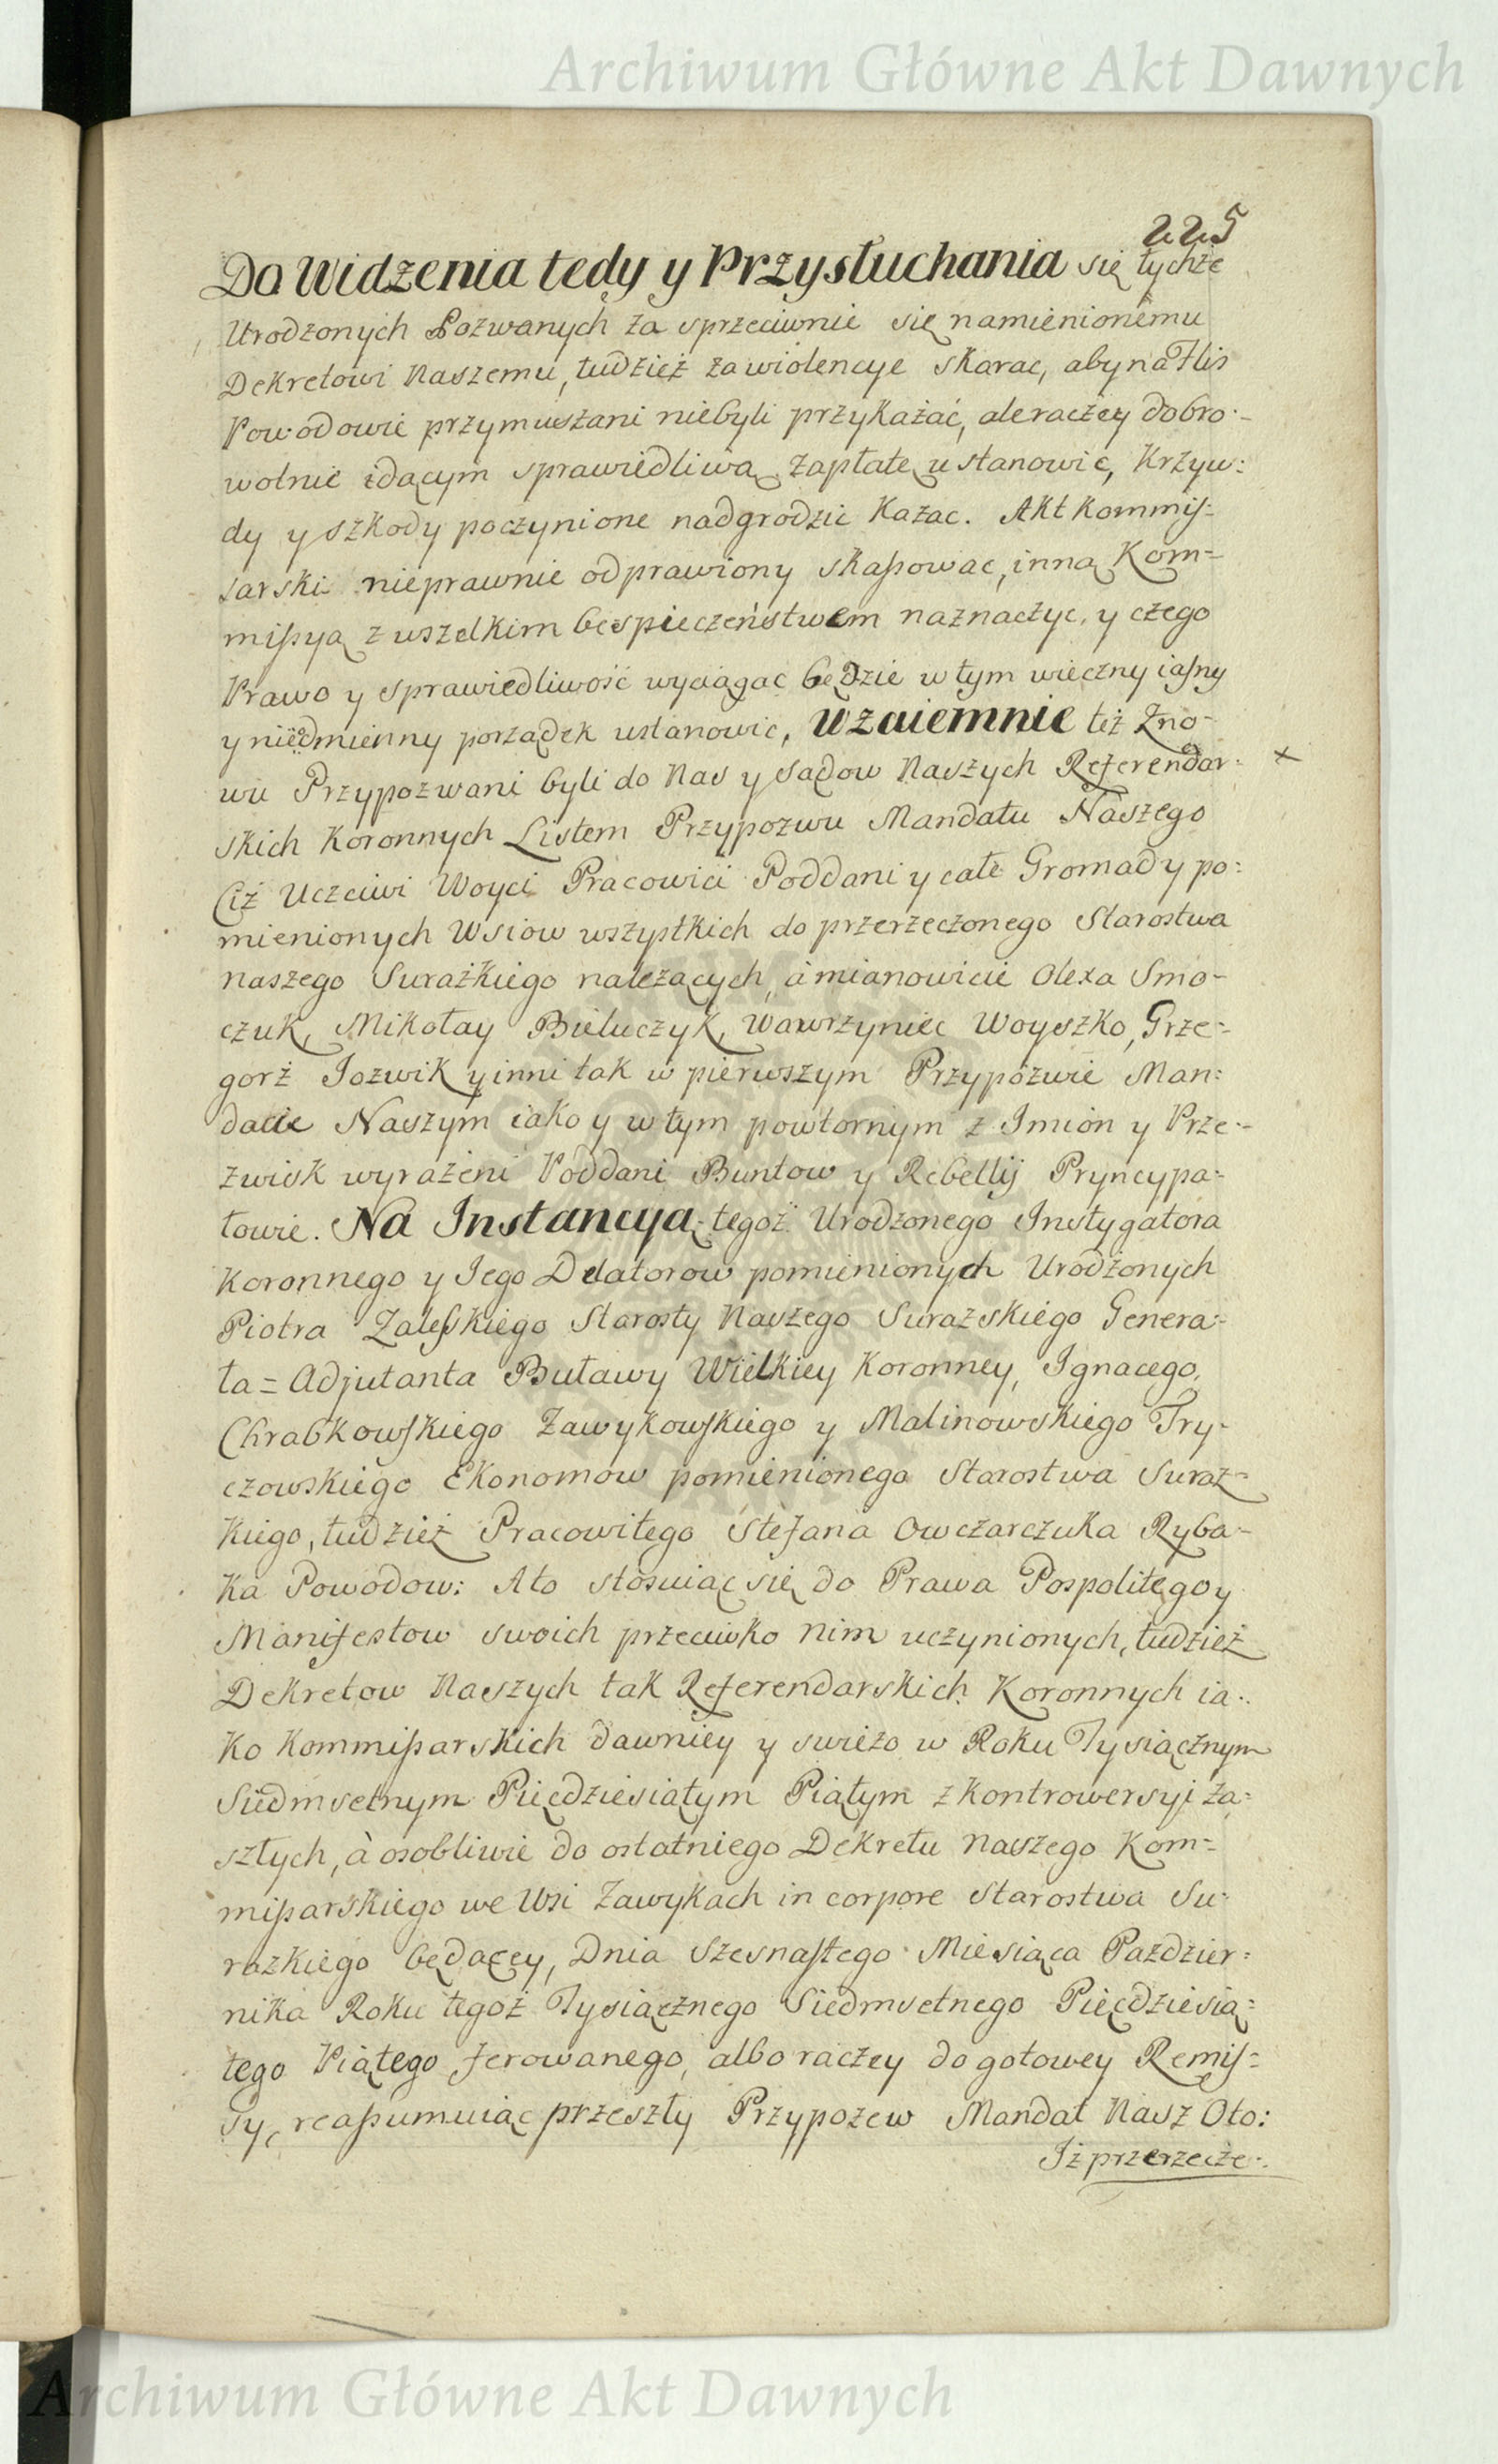 Archiwum Główne Akt Dawnych
225
Do Widzenia tedy y Przysłuchania się tychże
Urodzonych Pozwanych za sprzeciwnie się namienionemu
Dekretowi Naszemu, tudzież za wiolencye skarac, aby na Flis
Powodowie przymuszani niebyli przykazać, ale raczey dobro-
wolnie idącym sprawiedliwą zapłatę ustanowić, Krzyw:
dy y szkody poczynione nadgrodzic Kazac. Akt Kommis:
sarski nieprawnie odprawiony skassowac, inną Kom=
missyą z wszelkim bespieczeństwem naznaczyc, y czego
Prawo y sprawiedliwość wyciągac będzie w tym wieczny iasny
y nieodmienny porządek ustanowic, Wzaiemnie też Zno-
wu Przypozwani byli do Nas y Sądow Naszych Referendar:
skich Koronnych Listem Przypozwu Mandatu Naszego
Ciż Uczciwi Woyci Pracowici Poddani y całe Gromady po:
mienionych Wsiow wszystkich do przerzeczonego Starostwa
naszego Surażkiego należących, à mianowicie Olexa Smo-
czuk, Mikołay Bieluczyk, Wawrzyniec Woyszko, Grze-
gorz Jozwik y inni tak w pierwszym Przypozwie Man:
dacie Naszym iako y w tym powtornym z Imion y Prze-
zwisk wyrażeni Poddani Buntow y Rebellij Pryncypa-
łowie. Na Instancyą tegoż Urodzonego Instygatora
Koronnego y Jego Delatorow pomienionych Urodzonych
Piotra Zaleskiego Starosty Naszego Surazskiego Genera-
ła = Adjutanta Buławy Wielkiey Koronney, Ignacego
Chrabkowskiego Zawykowskiego y Malinowskiego Try-
czowskiego Ekonomow pomienionego Starostwa Suraz=
kiego, tudzież Pracowitego Stefana Owczarczuka Ryba-
ka Powodow: A to stosuiąc się do Prawa Pospolitego y
Manifestow swoich przeciwko nim uczynionych, tudzież
Dekretow Naszych tak Referendarskich Koronnych ia-
ko Kommissarskich dawniey y swieżo w Roku Tysiącznym
Siedmsetnym Pięćdziesiątym Piątym z Kontrowersyi za=
szłych, à osobliwie do ostatniego Dekretu naszego Kom=
missarskiego we Wsi Zawykach in corpore Starostwa Su-
razkiego będącey, Dnia Szesnastego Miesiąca Pazdzier=
nika Roku tegoż Tysiącznego Siedmsetnego Pięćdziesią=
tego Piątego ferowanego, albo raczey do gotowey Remis=
sy, reassumuiąc przeszły Przypozew Mandat Nasz Oto:
Iż przerzecze-
Archiwum Główne Akt Dawnych